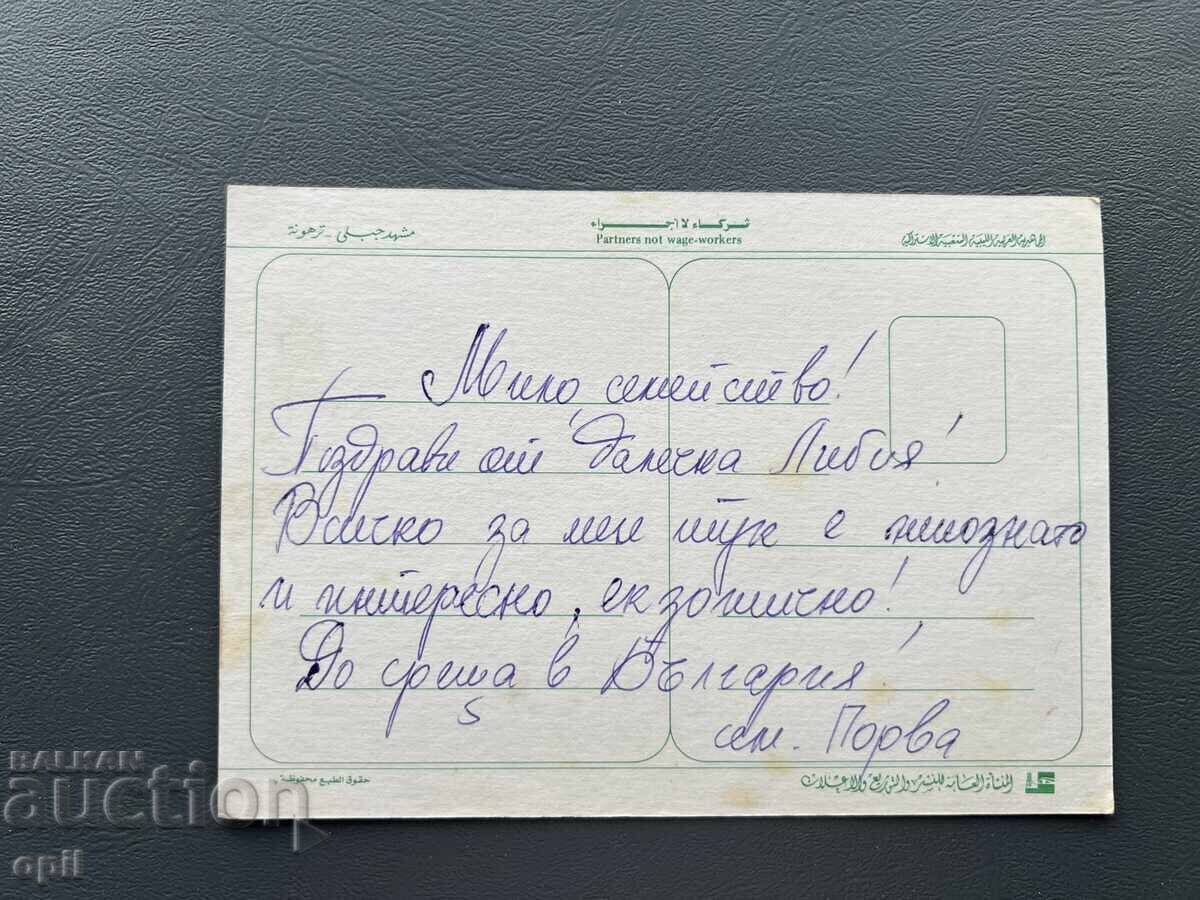 مشهد جبلي - ترهونة
شركاء لا أجراء
Partners not wage-workers
الجماهيرية العربية الليبية الشعبية الاشتراكية
Мило семейство!
Поздрави от далечна Либия!
Всичко за мен тук е
и интересно, екзотично!
До среща в България!
сем. Порва
حقوق الطبع محفوظة
المنشأة العامة للنشر والتوزيع والاعلان
BALKAN
auction
opil